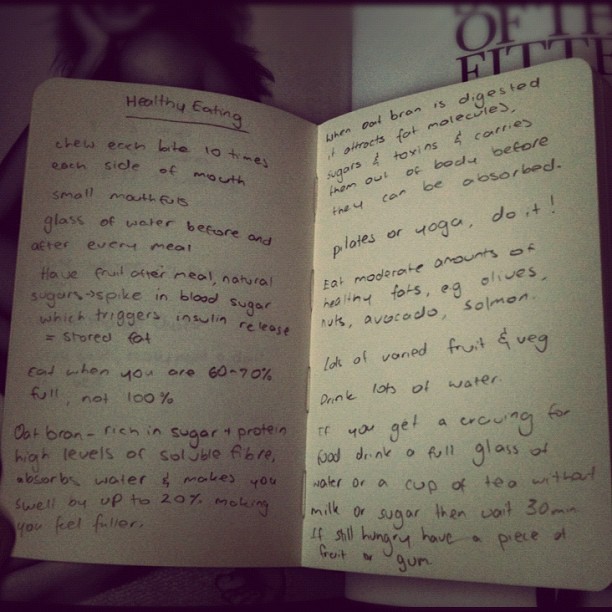 Healthy Eating
chew each bite 10 times
each side of mouth
small mouthfuls
glass of water before and
after every meal
Have fruit after meal, natural
sugars → spike in blood sugar
which triggers insulin release
= stored fat
Eat when you are 60-70%
full, not 100%
Oat bran - rich in sugar + protein
high levels of soluble fibre,
absorbs water & makes you
swell by up to 20% making
you feel fuller.
When oat bran is digested
it attracts fat molecules,
sugars & toxins & carries
them out of body before
they can be absorbed.
pilates or yoga, do it!
Eat moderate amounts of
healthy fats, eg olives,
nuts, avocado, salmon.
lots of varied fruit & veg
Drink lots of water.
If you get a craving for
food drink a full glass of
water or a cup of tea without
milk or sugar then wait 30min
If still hungry have a piece of
fruit or gum
OF TH
FITTE